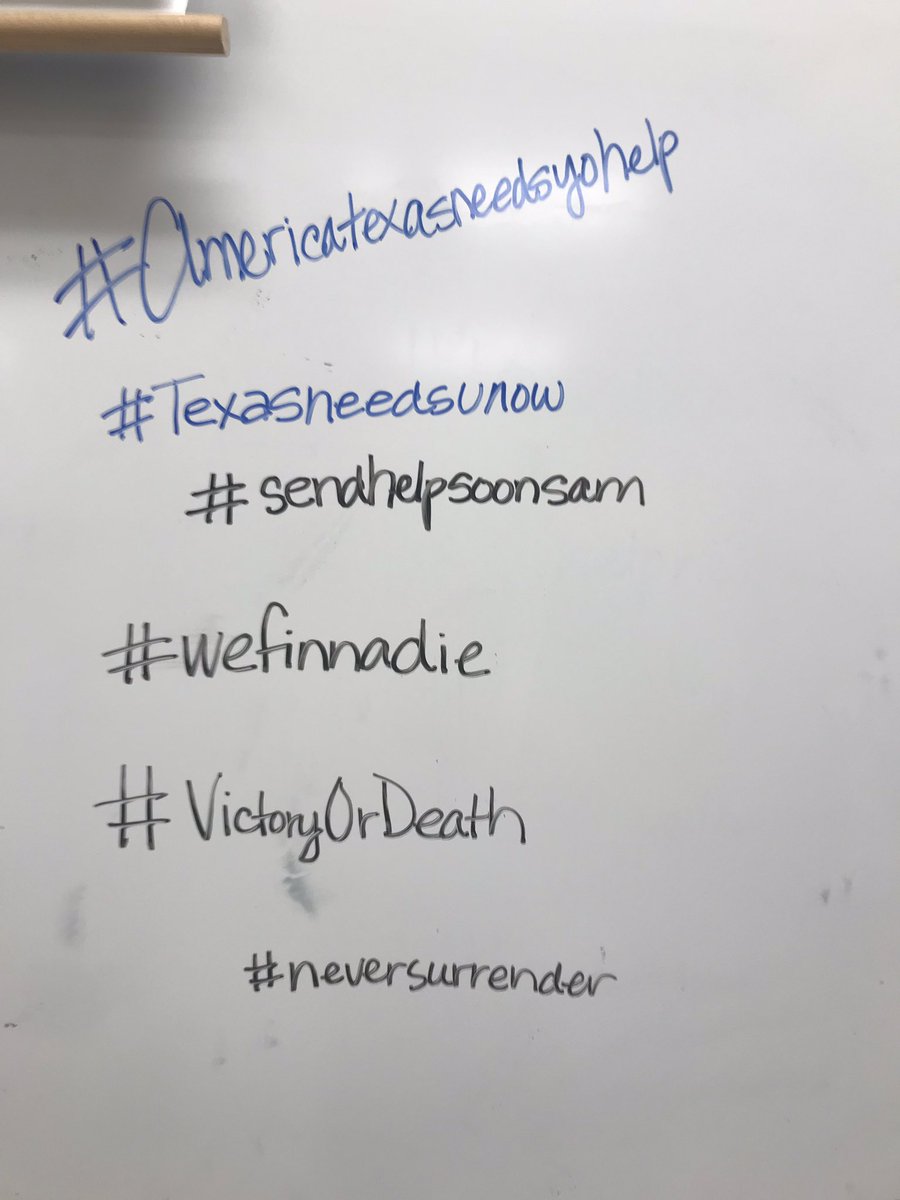 #Americatexasneedsyohelp
#Texasneedsunow
#sendhelpsoonsam
#wefinnadie
#VictoryOrDeath
#neversurrender